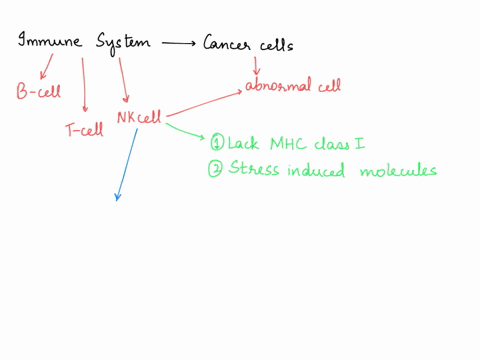 Immune System → Cancer cells
B-cell
T-cell
NK cell
abnormal cell
① Lack MHC class I
② Stress induced molecules